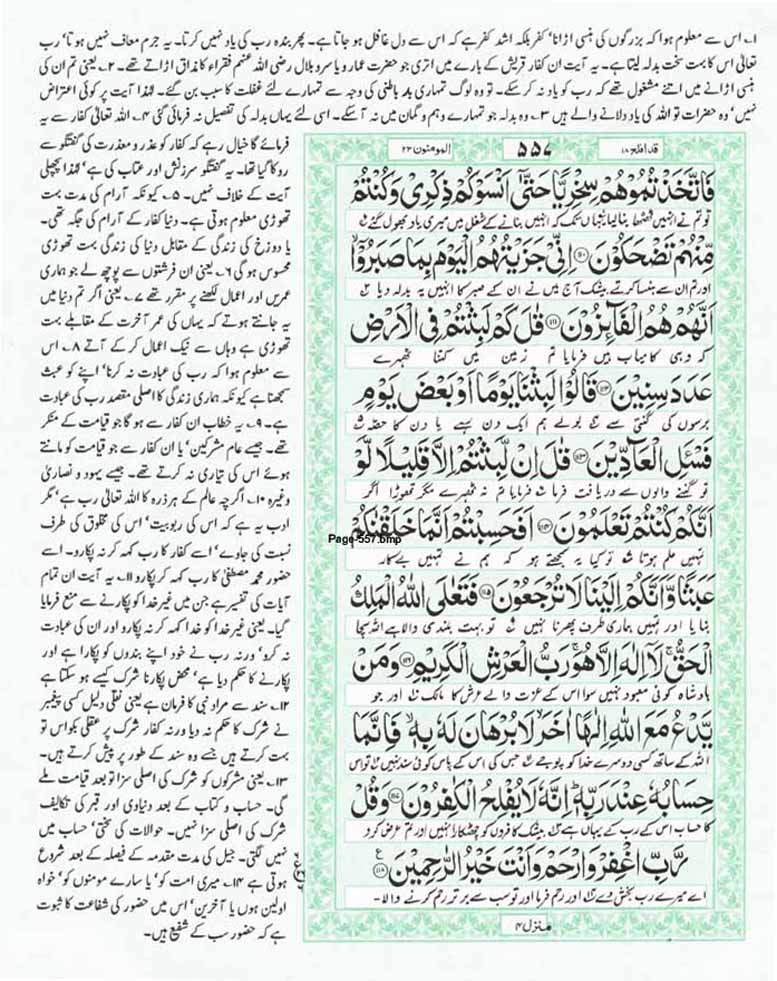 ۱۔ اس سے معلوم ہوا کہ بزرگوں کی ہنسی اڑانا' کفر بلکہ اشد کفر ہے کہ اس سے دل غافل ہو جاتا ہے۔ پھر بندہ رب کی یاد نہیں کرتا۔ یہ جرم معاف نہیں ہوتا' رب
تعالیٰ اس کا بہت سخت بدلہ لیتا ہے۔ یہ آیت ان کفار قریش کے بارے میں اتری جو حضرت عمار و یا سرو بلال رضی اللہ عنہم فقراء کا مذاق اڑاتے تھے۔ ۲۔ یعنی تم ان کی
ہنسی اڑانے میں اتنے مشغول تھے کہ رب کو یاد نہ کر سکے۔ تو وہ لوگ تمہاری بد باطنی کی وجہ سے تمہارے لئے غفلت کا سبب بن گئے۔ لہٰذا آیت پر کوئی اعتراض
نہیں' وہ حضرات تو اللہ کی یاد دلانے والے ہیں ۳۔ وہ بدلہ جو تمہارے وہم و گمان میں نہ آ سکے۔ اسی لئے یہاں بدلہ کی تفصیل نہ فرمائی گئی ۴۔ اللہ تعالیٰ کفار سے یہ
قد افلح ۱۸
۵۵۷
المومنون ۲۳
فَاتَّخَذْتُمُوْهُمْ سِخْرِیًّا حَتّٰۤى اَنْسَوْكُمْ ذِكْرِیْ وَ كُنْتُمْ
تو تم نے انہیں ٹھٹھا بنا لیا یہاں تک کہ انہیں بنانے کے شغل میں میری یاد بھول گئے
مِّنْهُمْ تَضْحَكُوْنَ ۱۱۰ اِنِّیْ جَزَیْتُهُمُ الْیَوْمَ بِمَا صَبَرُوْۤا
اور تم ان سے ہنسا کرتے بیشک آج میں نے ان کے صبر کا انہیں یہ بدلہ دیا
اَنَّهُمْ هُمُ الْفَآىٕزُوْنَ ۱۱۱ قٰلَ كَمْ لَبِثْتُمْ فِی الْاَرْضِ
کہ وہی کامیاب ہیں فرمایا تم زمین میں کتنا ٹھہرے
عَدَدَ سِنِیْنَ ۱۱۲ قَالُوْا لَبِثْنَا یَوْمًا اَوْ بَعْضَ یَوْمٍ
برسوں کی گنتی سے بولے ہم ایک دن رہے یا دن کا حصہ
فَسْـَٔلِ الْعَآدِّیْنَ ۱۱۳ قٰلَ اِنْ لَّبِثْتُمْ اِلَّا قَلِیْلًا لَّوْ
تو گننے والوں سے دریافت فرما فرمایا تم نہ ٹھہرے مگر تھوڑا اگر
اَنَّكُمْ كُنْتُمْ تَعْلَمُوْنَ ۱۱۴ اَفَحَسِبْتُمْ اَنَّمَا خَلَقْنٰكُمْ
Page-557.bmp
تمہیں علم ہوتا تو کیا یہ سمجھتے ہو کہ ہم نے تمہیں بیکار
عَبَثًا وَّ اَنَّكُمْ اِلَیْنَا لَا تُرْجَعُوْنَ ۱۱۵ فَتَعٰلَى اللّٰهُ الْمَلِكُ
بنایا اور تمہیں ہماری طرف پھرنا نہیں تو بہت بلندی والا ہے اللہ سچا
الْحَقُّ ۚ لَاۤ اِلٰهَ اِلَّا هُوَ ۚ رَبُّ الْعَرْشِ الْكَرِیْمِ ۱۱۶ وَ مَنْ
بادشاہ کوئی معبود نہیں سوا اس کے عزت والے عرش کا مالک اور جو
یَّدْعُ مَعَ اللّٰهِ اِلٰهًا اٰخَرَ ۙ لَا بُرْهَانَ لَهٗ بِهٖ ۙ فَاِنَّمَا
اللہ کے ساتھ کسی دوسرے خدا کو پوجے جس کی اس کے پاس کوئی سند نہیں تو اس
حِسَابُهٗ عِنْدَ رَبِّهٖ ؕ اِنَّهٗ لَا یُفْلِحُ الْكٰفِرُوْنَ ۱۱۷ وَ قُلْ
کا حساب اس کے رب کے یہاں ہے بیشک کافروں کو چھٹکارا نہیں اور تم عرض کرو
رَّبِّ اغْفِرْ وَ ارْحَمْ وَ اَنْتَ خَیْرُ الرّٰحِمِیْنَ ۱۱۸
اے میرے رب بخش دے اور رحم فرما اور تو سب سے برتر رحم کرنے والا۔
منزل ۴
فرمائے گا خیال رہے کہ کفار کو عذر و معذرت کی گفتگو سے
روکا گیا تھا۔ یہ گفتگو سرزنش اور عتاب کی ہے' لہٰذا پچھلی
آیت کے خلاف نہیں۔ ۵۔ کیونکہ آرام کی مدت بہت
تھوڑی معلوم ہوتی ہے۔ دنیا کفار کے آرام کی جگہ تھی۔
یا دوزخ کی زندگی کے مقابل دنیا کی زندگی بہت تھوڑی
محسوس ہوگی ۶۔ یعنی ان فرشتوں سے پوچھ لے جو ہماری
عمریں اور اعمال لکھنے پر مقرر تھے ۷۔ یعنی اگر تم دنیا میں
یہ جانتے ہوتے کہ یہاں کی عمر آخرت کے مقابلے بہت
تھوڑی ہے وہاں سے نیک اعمال کر کے آتے ۸۔ اس
سے معلوم ہوا کہ رب کی عبادت نہ کرنا' اپنے کو عبث
سمجھنا ہے کیونکہ ہماری زندگی کا اصلی مقصد رب کی عبادت
ہے۔ ۹۔ یہ خطاب ان کفار سے ہو گا جو قیامت کے منکر
تھے۔ جیسے عام مشرکین' یا ان کفار سے جو قیامت کو مانتے
ہوئے اس کی تیاری نہ کرتے تھے۔ جیسے یہود و نصاریٰ
وغیرہ ۱۰۔ اگرچہ عالم کے ہر ذرہ کا اللہ تعالیٰ رب ہے' مگر
ادب یہ ہے کہ اس کی ربوبیت' اس کی مخلوق کی طرف
نسبت کی جاوے' اسے کفار کا رب کہہ کر نہ پکارو۔ اسے
حضور محمد مصطفیٰ کا رب کہہ کر پکارو ۱۱۔ یہ آیت ان تمام
آیات کی تفسیر ہے جن میں غیر خدا کو پکارنے سے منع فرمایا
گیا۔ یعنی غیر خدا کو خدا کہہ کر نہ پکارو اور ان کی عبادت
نہ کرو' ورنہ رب نے خود اپنے بندوں کو پکارا ہے اور
پکارنے کا حکم دیا ہے' محض پکارنا شرک کیسے ہو سکتا ہے
۱۲۔ سند سے مراد نبی کا فرمان ہے یعنی نقلی دلیل کسی پیغمبر
نے شرک کا حکم نہ دیا ورنہ کفار شرک پر عقلی بکواس تو
بہت کرتے ہیں جسے وہ سند کے طور پر پیش کرتے ہیں۔
۱۳۔ یعنی مشرکوں کو شرک کی اصلی سزا تو بعد قیامت ملے
گی۔ حساب و کتاب کے بعد دنیاوی اور قبر کی تکالیف
شرک کی اصلی سزا نہیں۔ حوالات کی سختی' حساب میں
نہیں لگتی۔ جیل کی مدت مقدمہ کے فیصلہ کے بعد شروع
ہوتی ہے ۱۴۔ میری امت کو' یا سارے مومنوں کو' خواہ
اولین ہوں یا آخرین' اس میں حضور کی شفاعت کا ثبوت
ہے کہ حضور سب کے شفیع ہیں۔